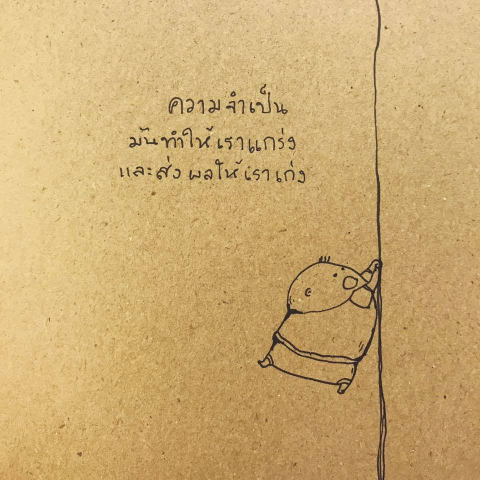 ความจำเป็น
มันทำให้เราแกร่ง
และส่งผลให้เราเก่ง